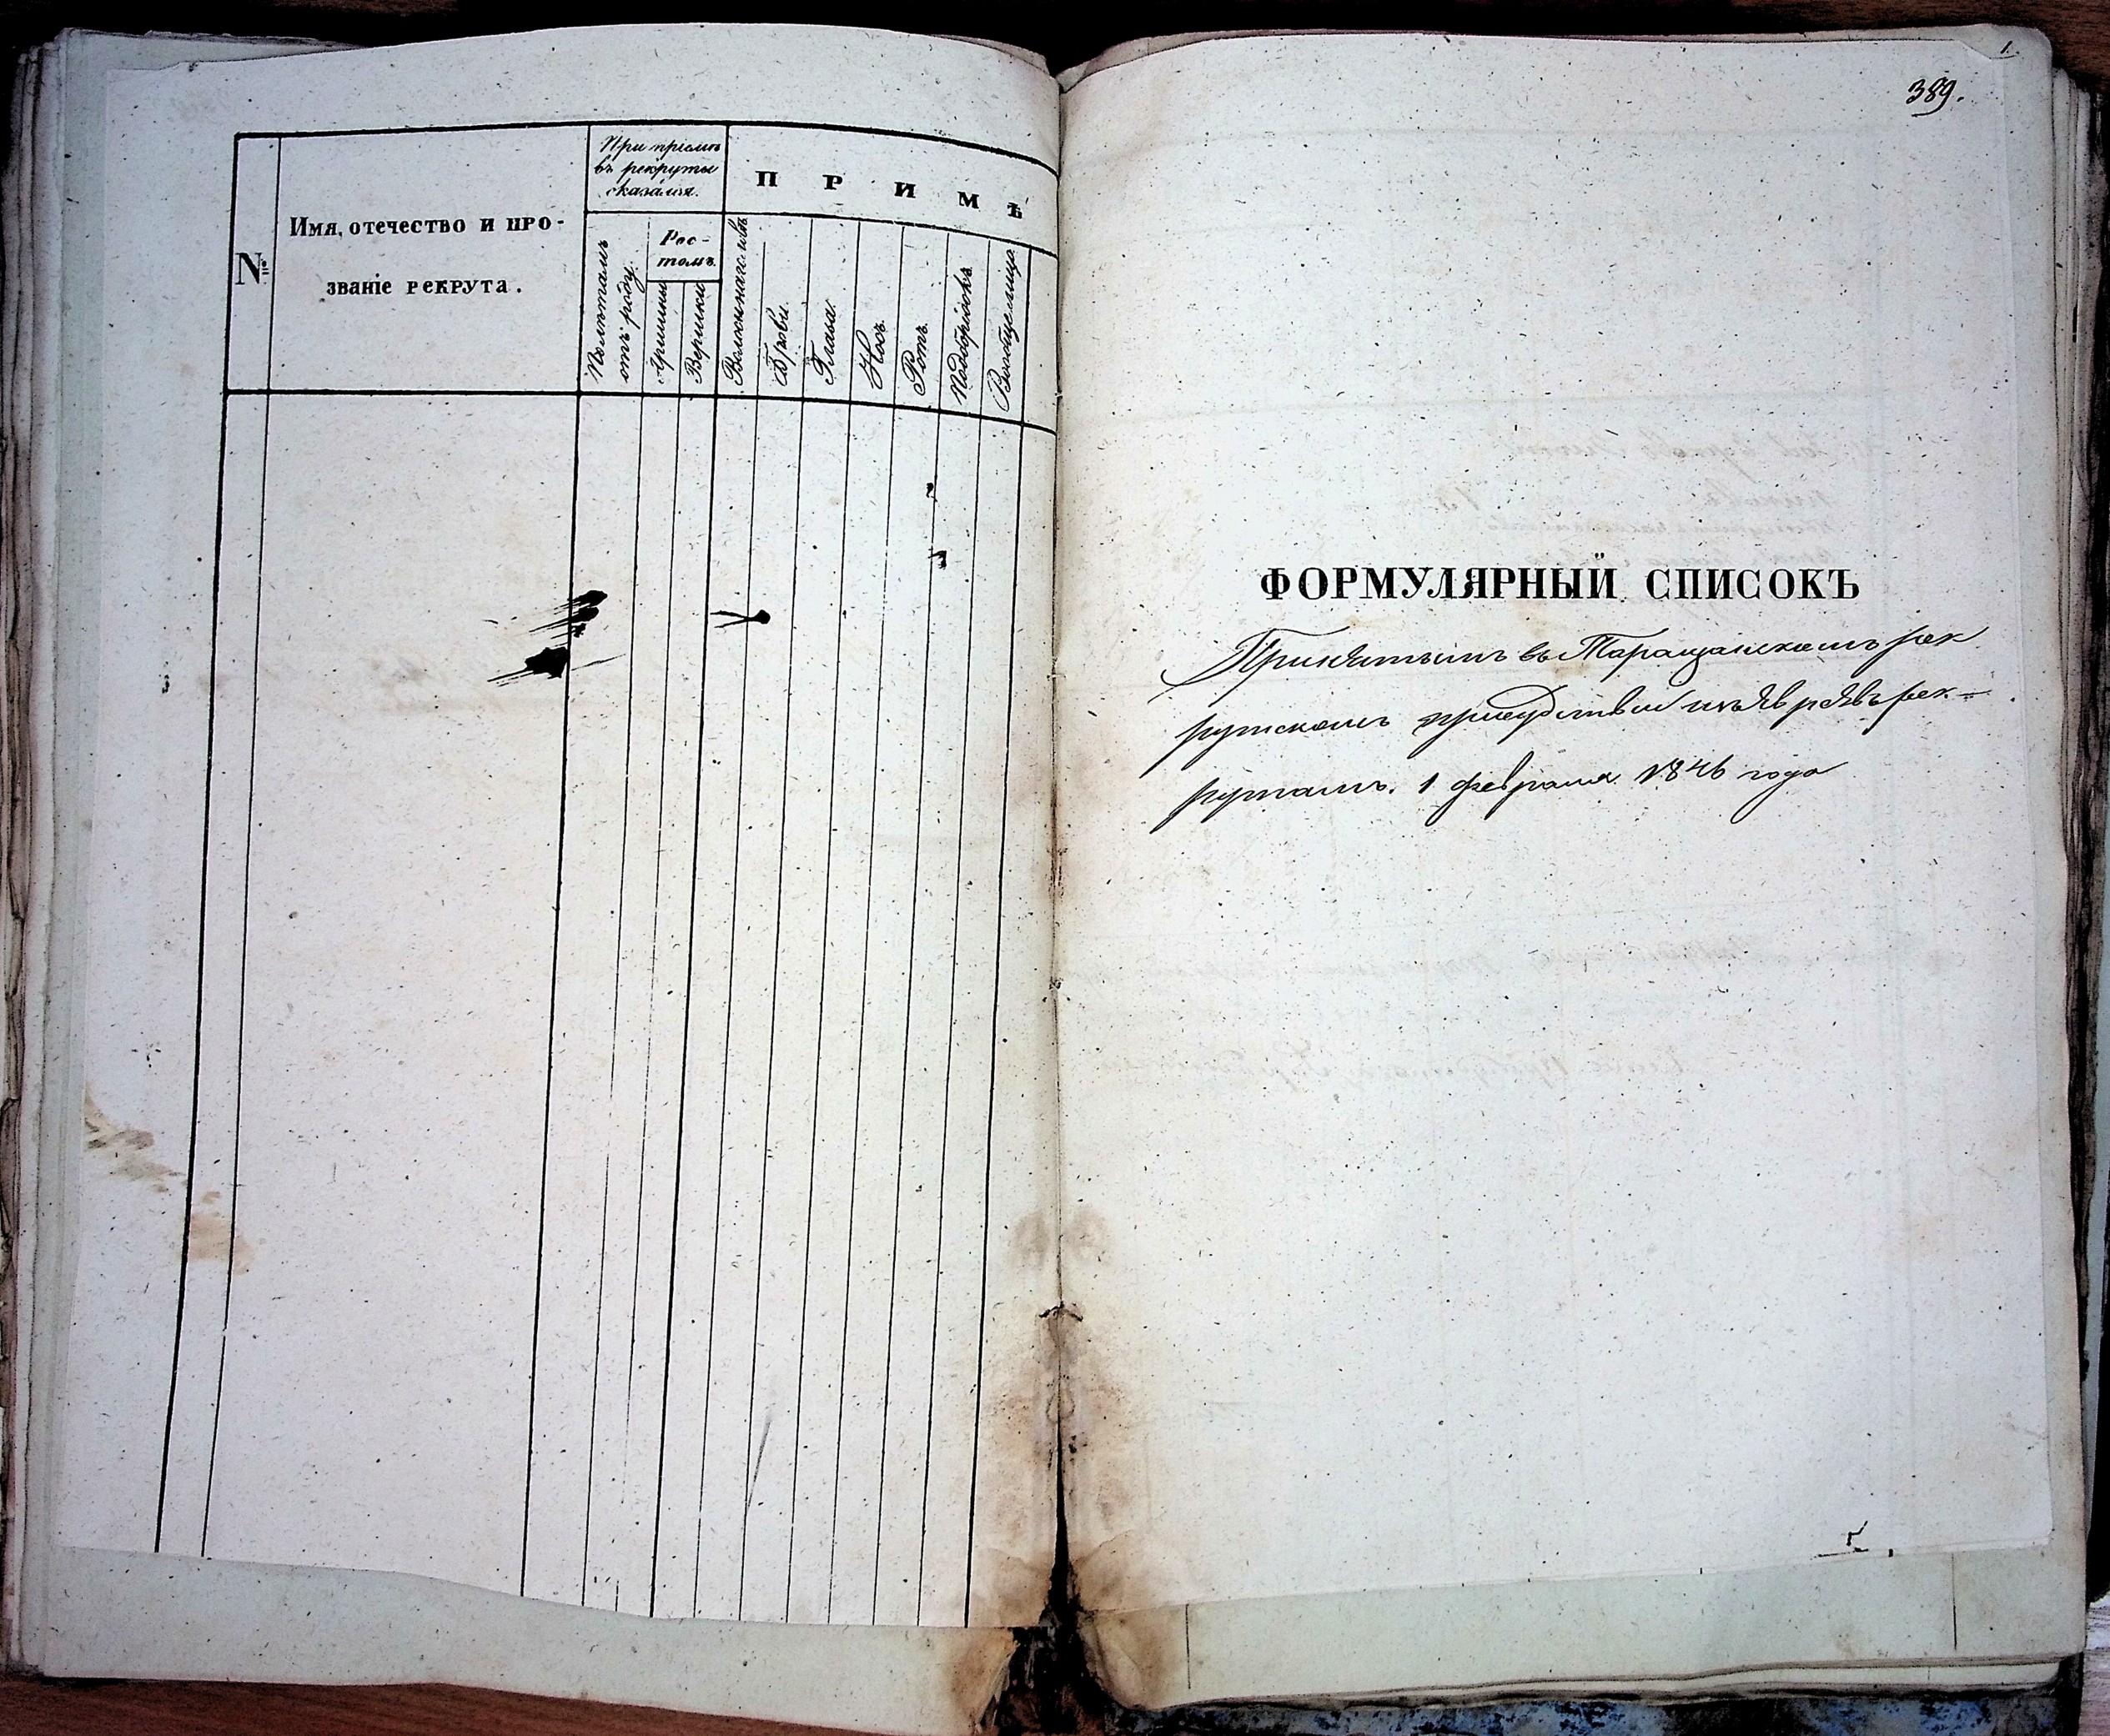 №
Имя, отечество и про-
званіе рекрута.
При пріемѣ
въ рекруты
сказался.
Полѣтамъ
отъ роду.
Рос-
томъ.
Аршины
Вершки
П Р И М Ѣ
Брови.
Глаза.
Носъ.
Ротъ.
Подбородокъ
Вообще лицо.
1.
389.
ФОРМУЛЯРНЫЙ СПИСОКЪ
Принятымъ въ Таращанскомъ рек
рутскомъ присудствіи изъ Евреѣвъ рек-
рутамъ. 1 февраля 1846 года